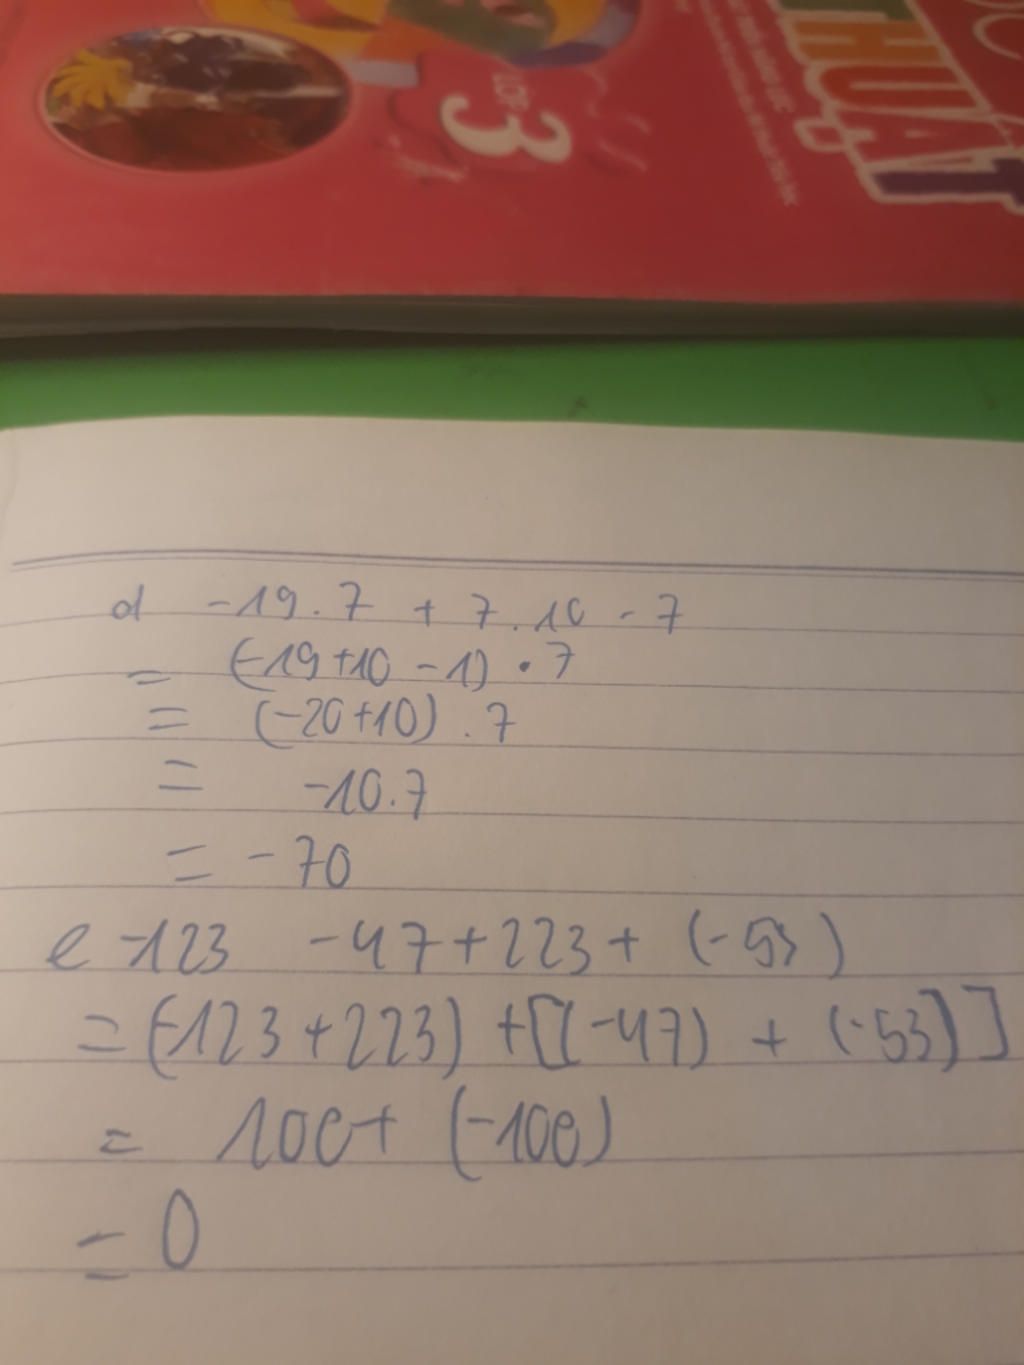 LỚP
3
THUẬT
d -19.7 + 7.10 - 7
= (-19+10 -1) . 7
= (-20+10) . 7
= -10.7
= -70
e -123 -47+223+ (-53)
= (-123+223) +[(-47) + (-53)]
= 100+ (-100)
= 0